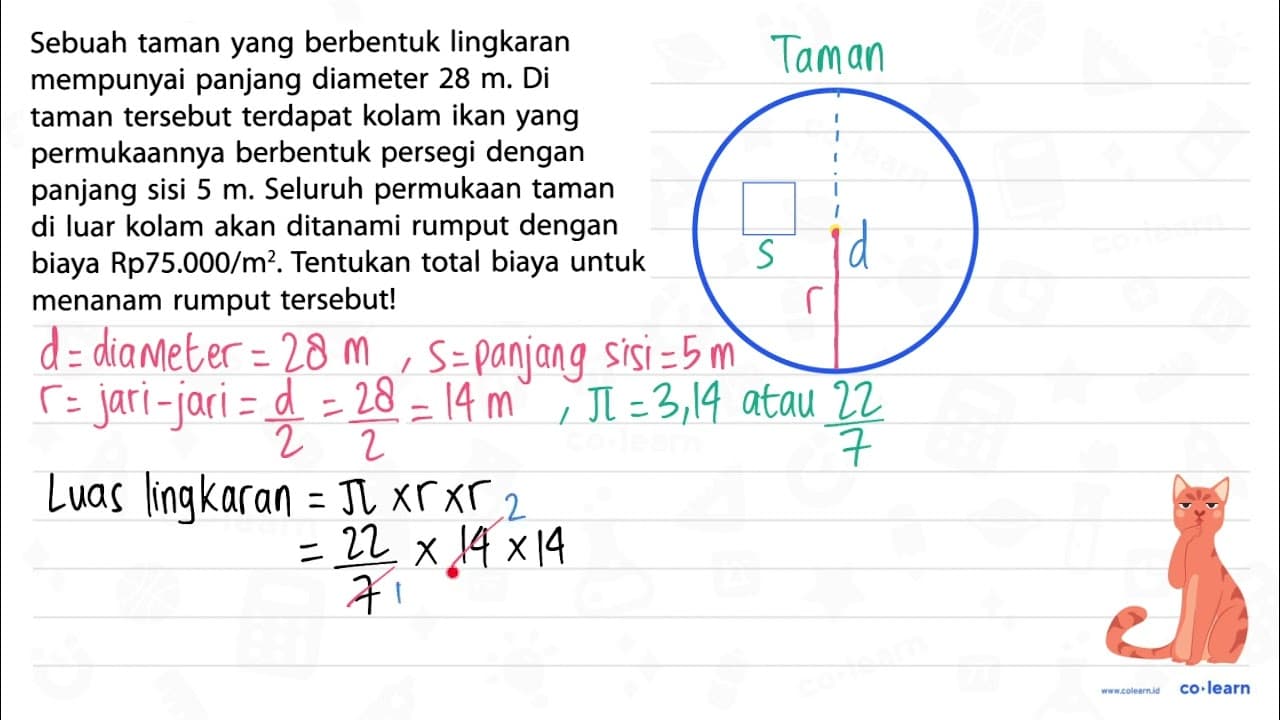 Sebuah taman yang berbentuk lingkaran
mempunyai panjang diameter 28 m. Di
taman tersebut terdapat kolam ikan yang
permukaannya berbentuk persegi dengan
panjang sisi 5 m. Seluruh permukaan taman
di luar kolam akan ditanami rumput dengan
biaya Rp75.000/m². Tentukan total biaya untuk
menanam rumput tersebut!
Taman
s
d
r
d = diameter = 28 m , s = panjang sisi = 5 m
r = jari-jari = d/2 = 28/2 = 14 m , π = 3,14 atau 22/7
Luas lingkaran = π × r × r
2
= 22/7 × 14 × 14
1
www.colearn.id co·learn